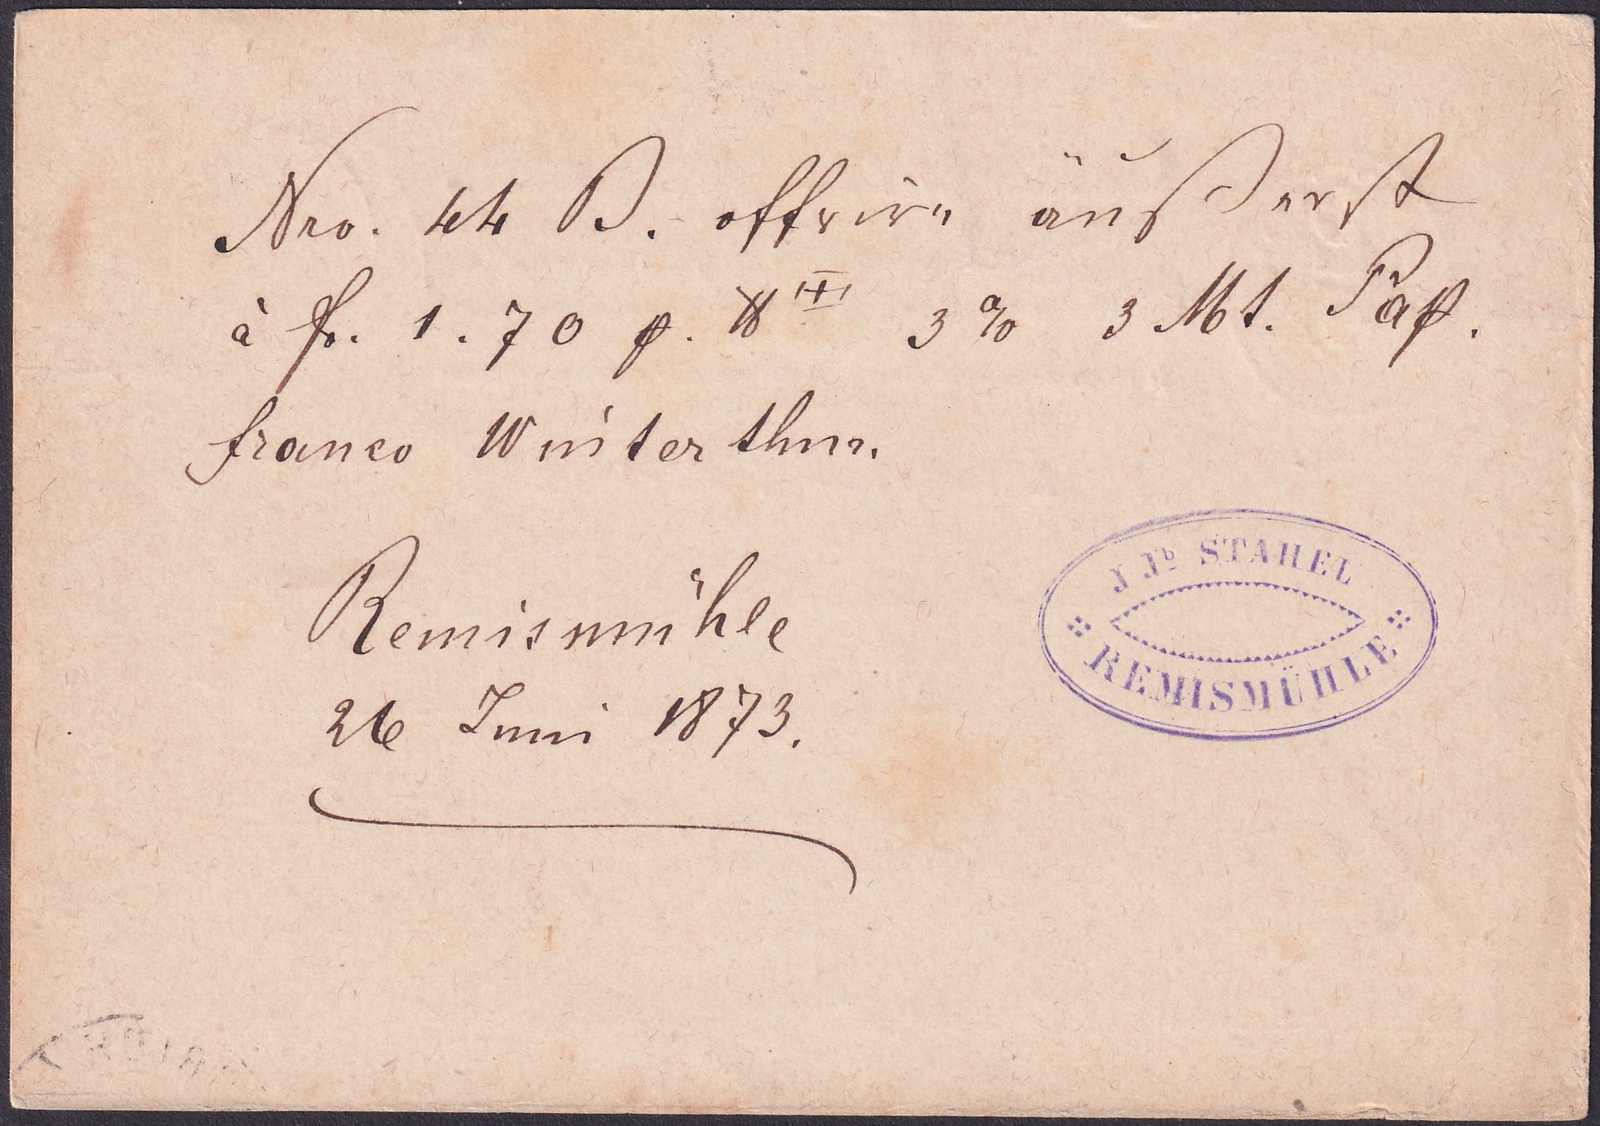 Nro. 44 B. offrire äußerst
à fr. 1.70 p. 3% 3 Mt. Pap.
franco Winterthur.
Remismühle
26 Juni 1873.
J Jb STAHEL
REMISMÜHLE